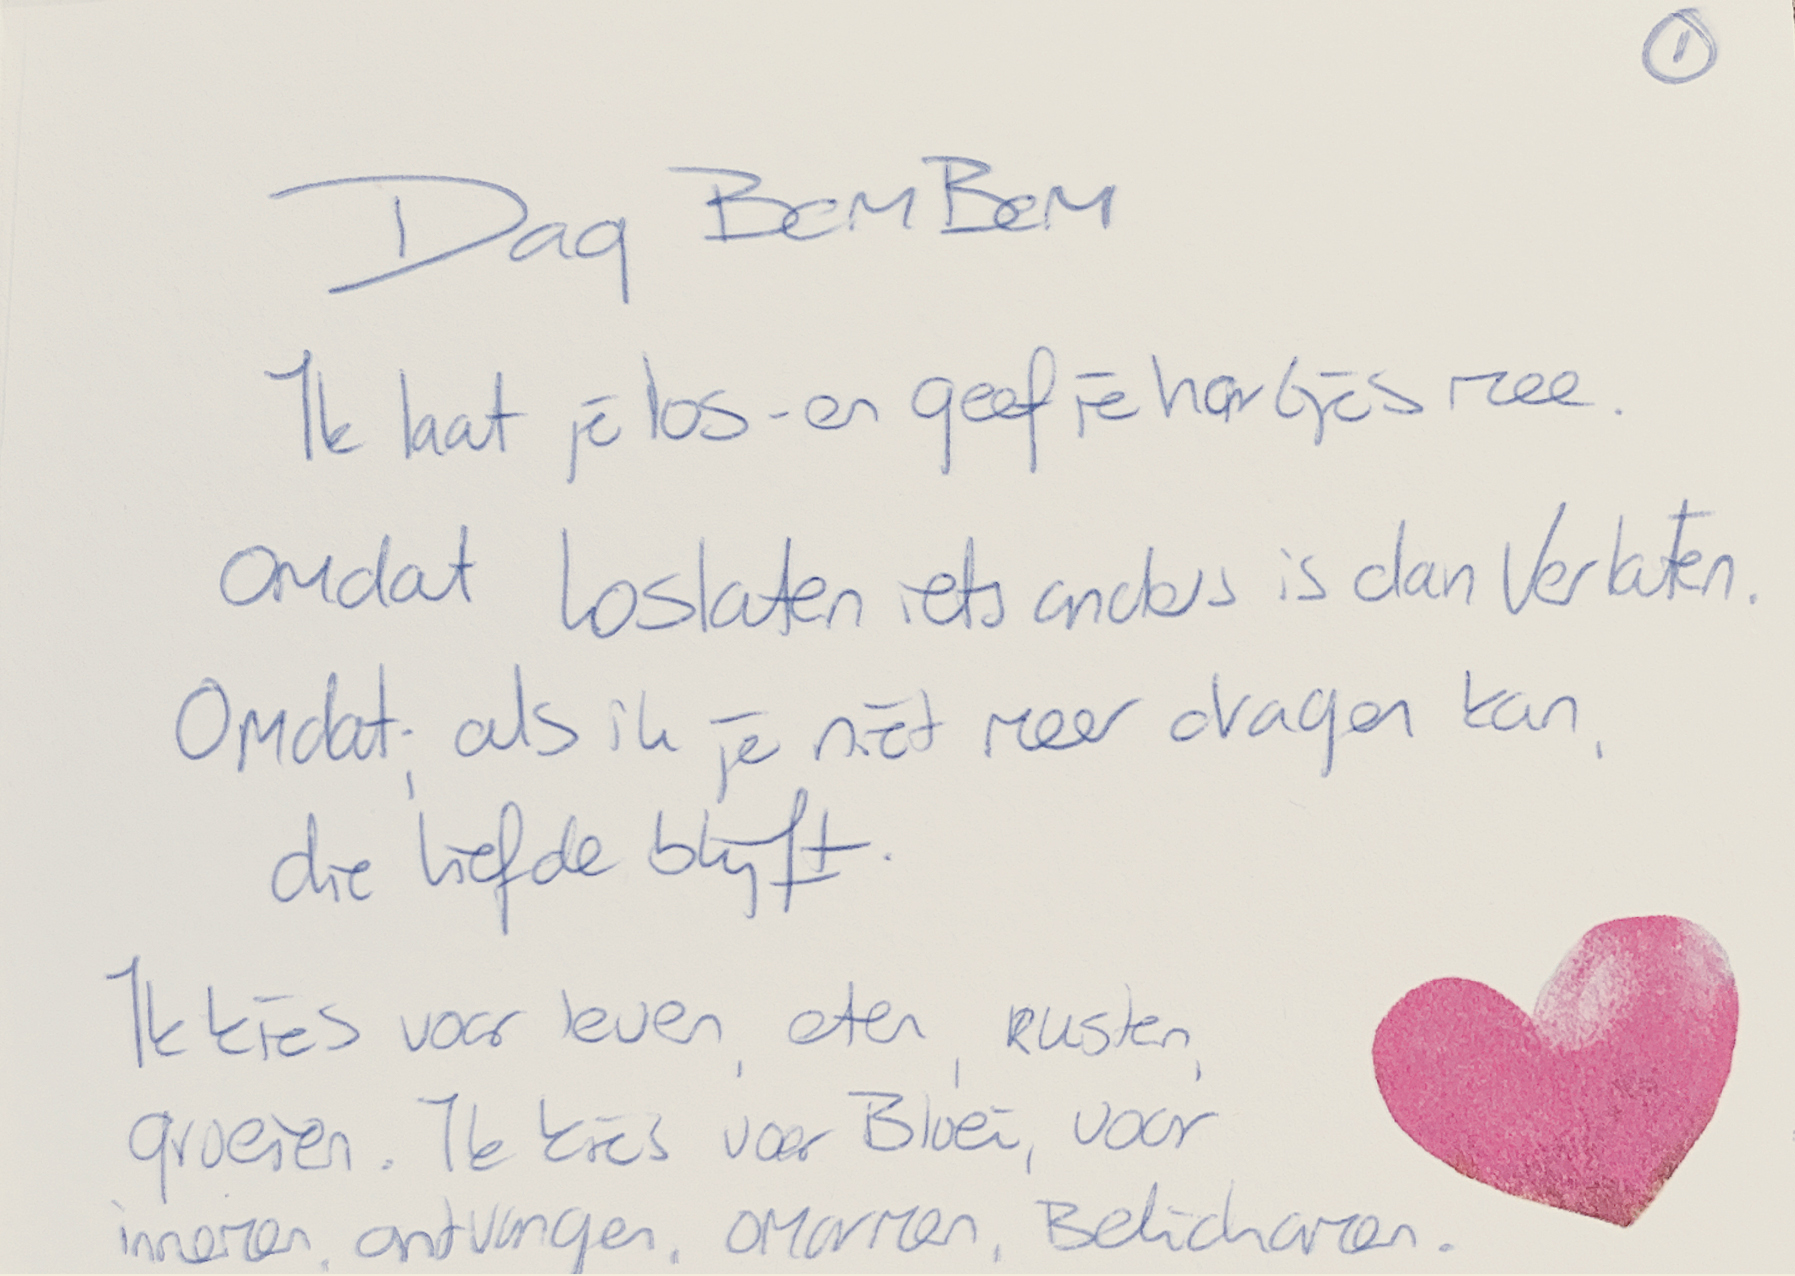 1
Dag BemBem
Ik laat je los - en geef je hartjes mee.
Omdat Loslaten iets anders is dan Verlaten.
Omdat, als ik je niet meer dragen kan,
die liefde blijft.
Ik kies voor leven, eten, Rusten,
groeien. Ik kies voor Bloei, voor
innemen, ontvangen, omarmen, Belichamen.